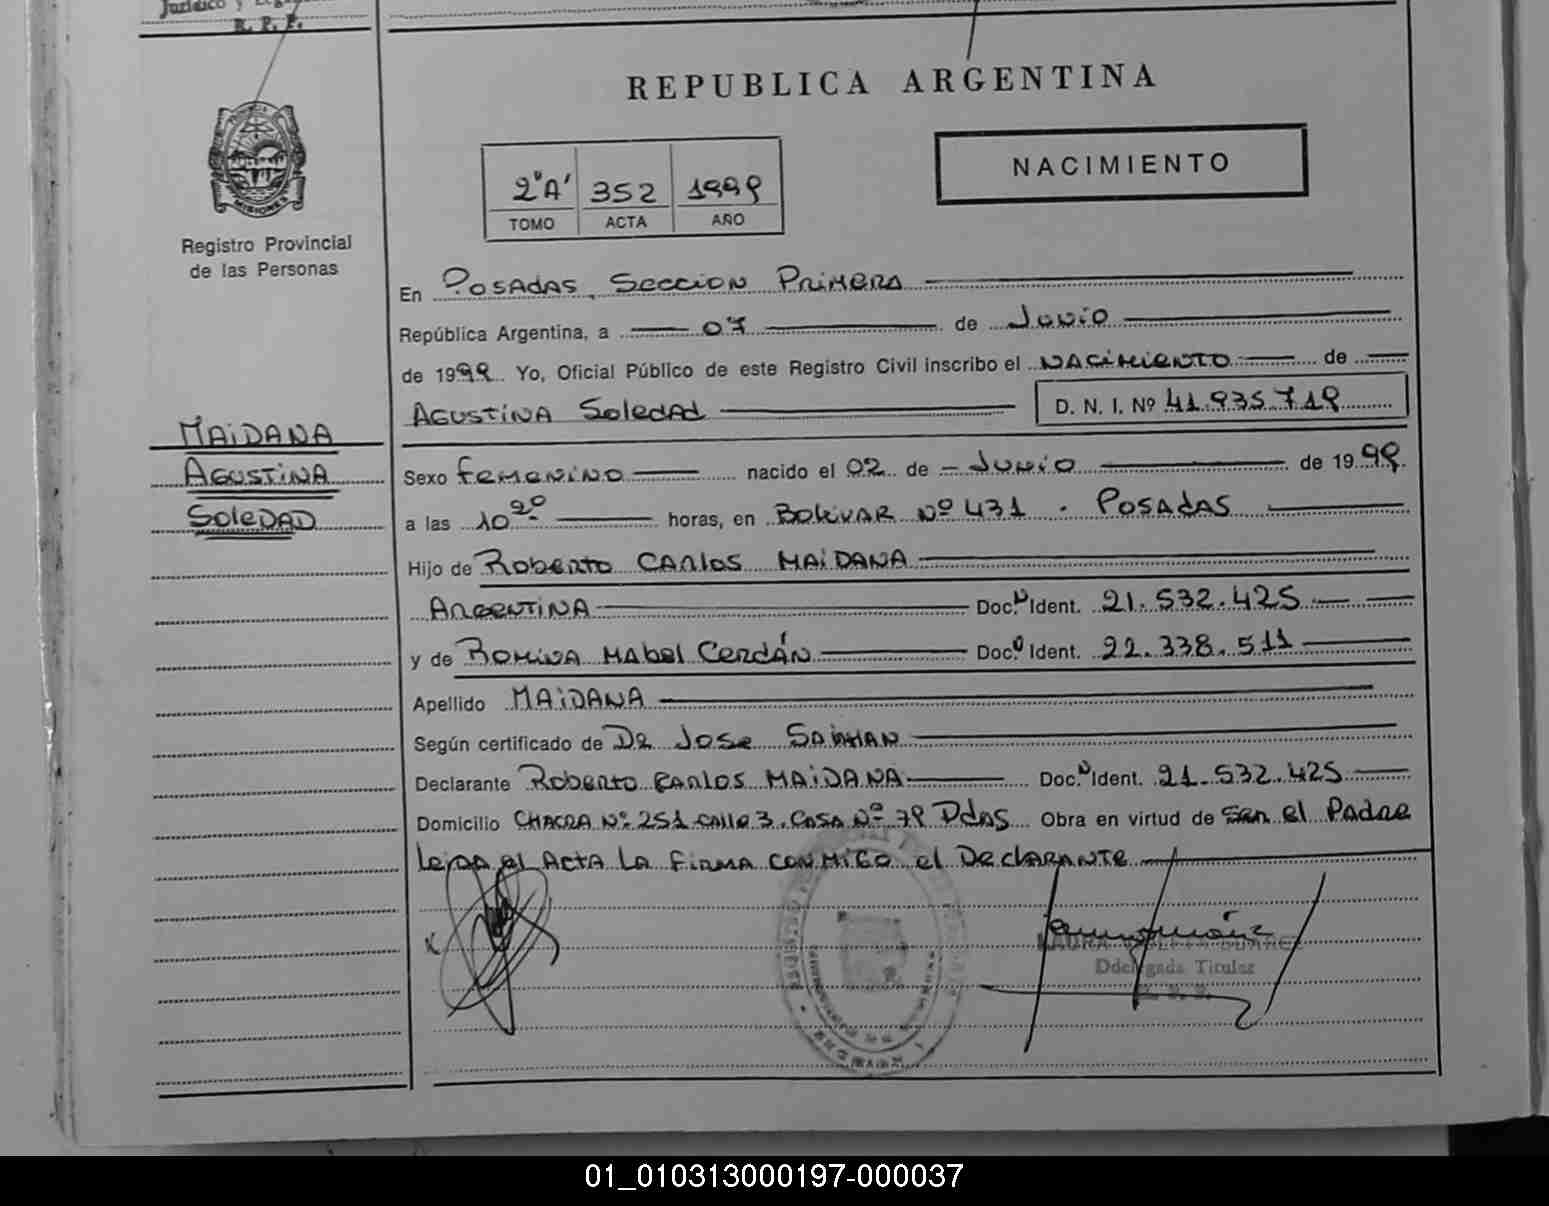 Jurídico y
R. P. P.
REPUBLICA ARGENTINA
NACIMIENTO
2º "A" 352 1999
TOMO ACTA AÑO
PROVINCIA
MISIONES
Registro Provincial
de las Personas
En POSADAS, SECCION PRIMERA
República Argentina, a 07 de Junio
de 1999 Yo, Oficial Público de este Registro Civil inscribo el NACIMIENTO de
AGUSTINA SOLEDAD D. N. I. Nº 41.935.719
MAIDANA
AGUSTINA
SOLEDAD
Sexo Femenino nacido el 02 de Junio de 1999.
a las 10 20 horas, en BOLIVAR Nº 431. POSADAS
Hijo de Roberto CARLOS MAIDANA
ARGENTINA Doc. Ident. 21.532.425
y de Romina MABEL CERDÁN Doc. Ident. 22.338.511
Apellido MAIDANA
Según certificado de DR JOSE
Declarante ROBERTO CARLOS MAIDANA Doc. Ident. 21.532.425
Domicilio CHACRA Nº 251 CALLE 3. CASA Nº 79 Pdas Obra en virtud de ser el PADRE
Leida el ACTA LA FIRMA CONMIGO el DECLARANTE
LAURA SUAREZ
Delegada Titular
01_010313000197-000037